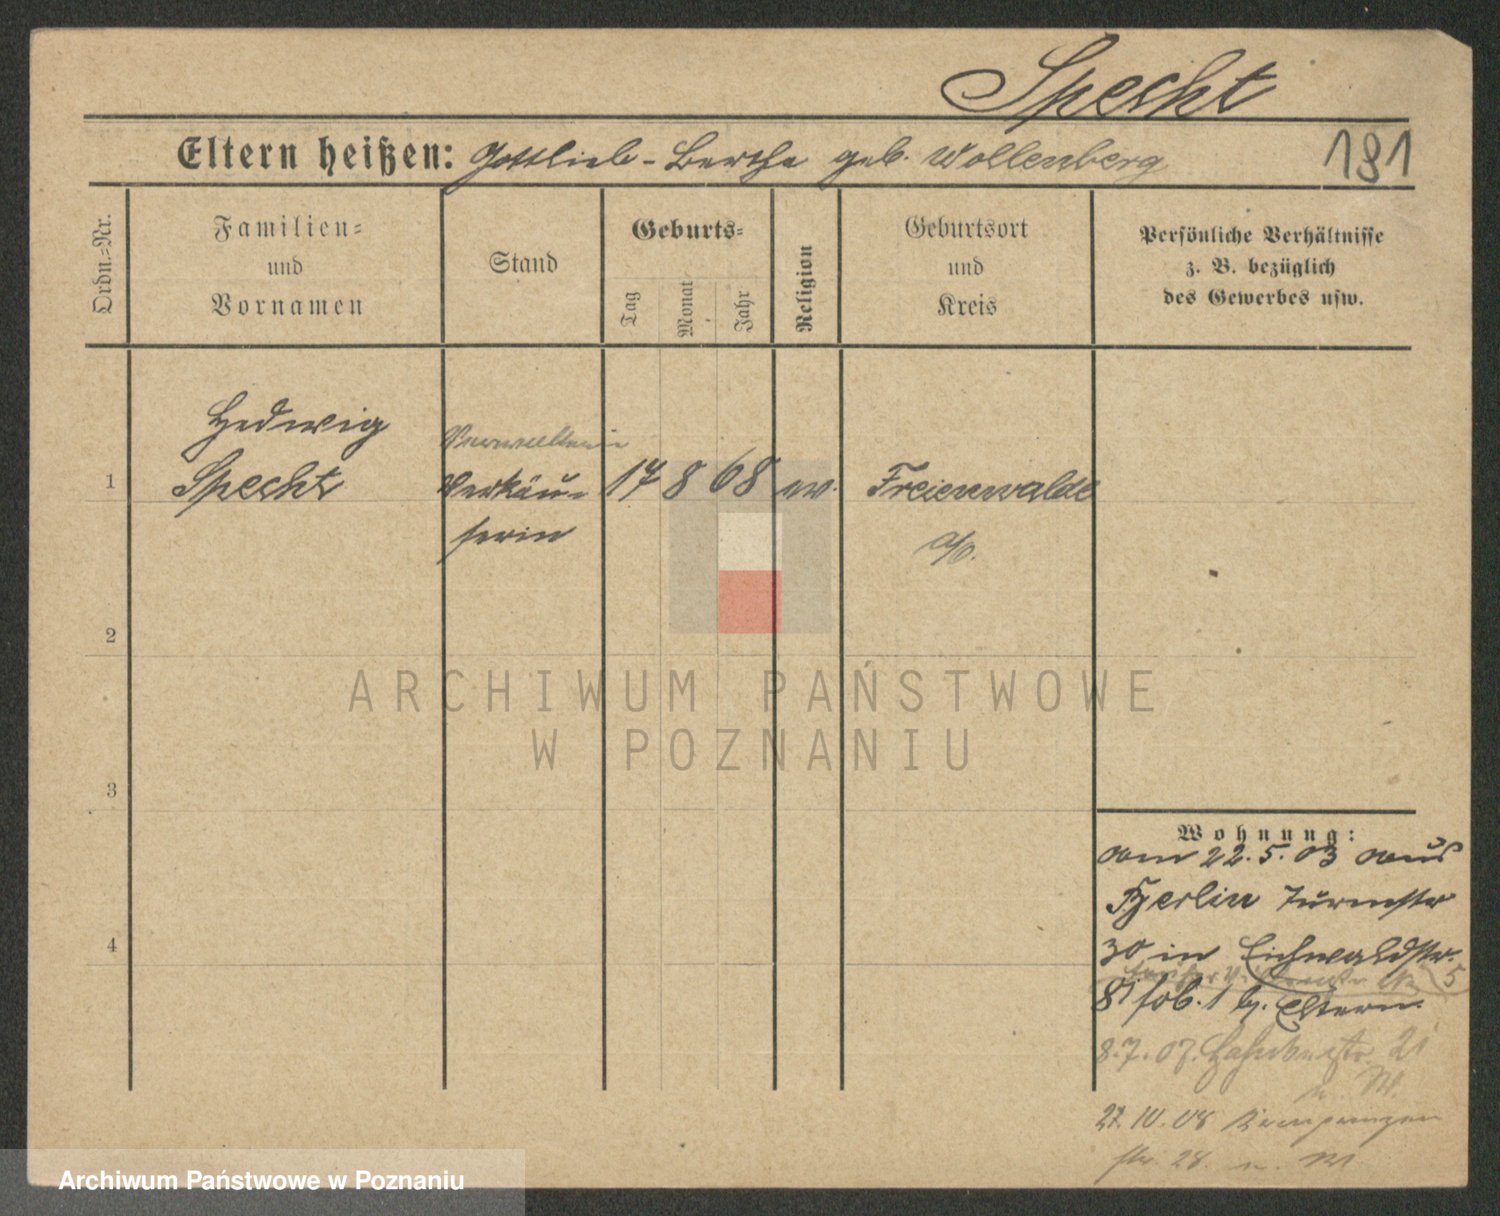 Specht
Eltern heißen: Gottlieb - Berthe geb. Wollenberg
181
Ordn.=Nr.
Familien=
und
Vornamen
Stand
Geburts=
Tag
Monat
Jahr
Religion
Geburtsort
und
Kreis
Persönliche Verhältnisse
z. B. bezüglich
des Gewerbes usw.
1
Hedwig
Specht
Verkäu-
ferin
17 8 68
ev.
Freienwalde
a/O.
2
3
4
Wohnung:
am 22.5.03 aus
Berlin Turmstr
30 in Eichwaldstr.
8I b. Eltern
8.7.07. 21
27.10.08
str. 28.
ARCHIWUM PAŃSTWOWE
W POZNANIU
Archiwum Państwowe w Poznaniu